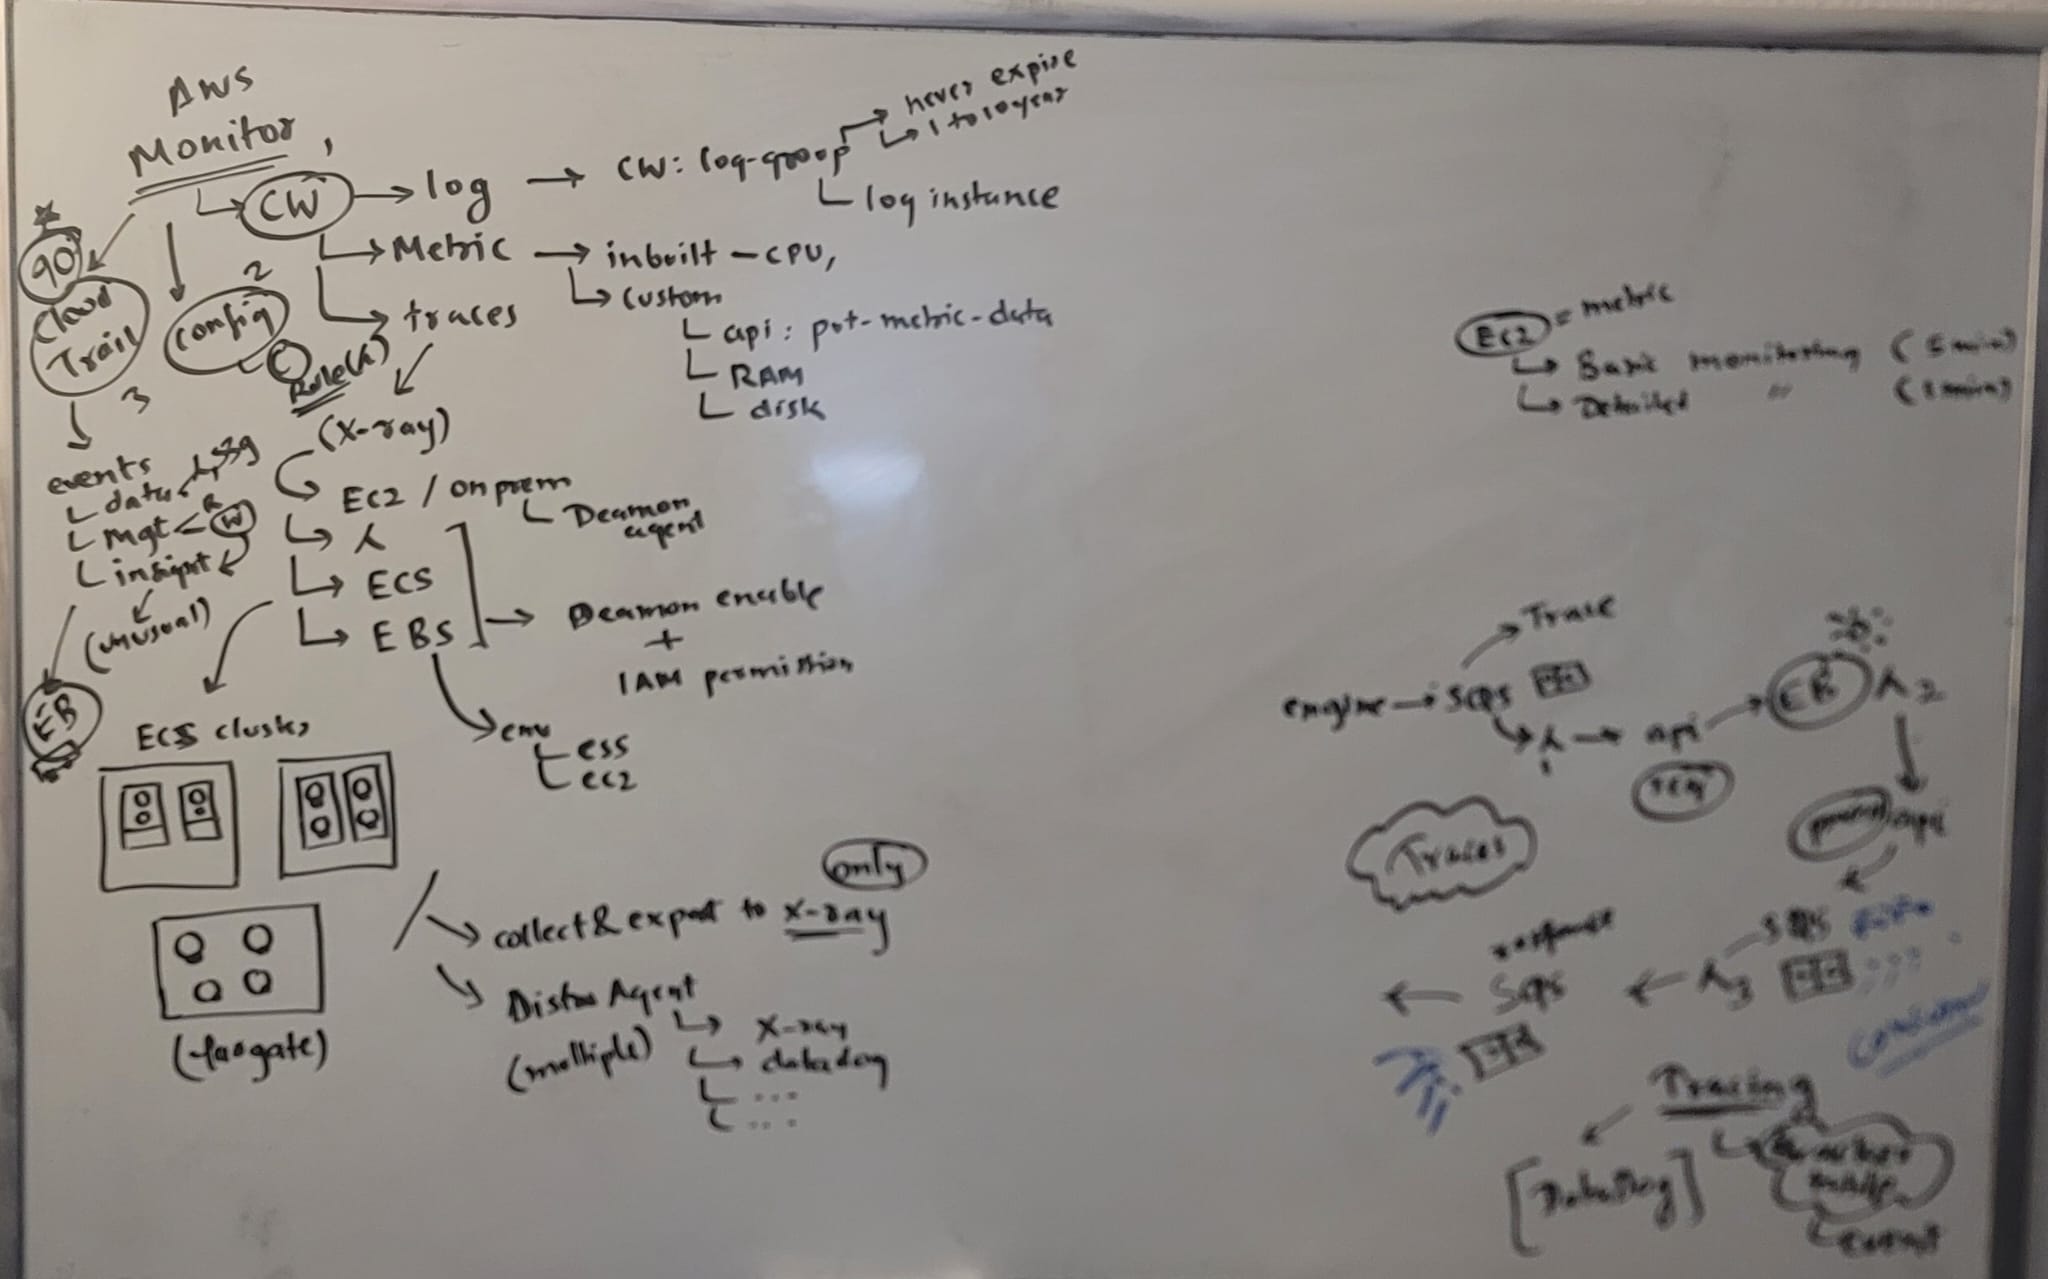 AWS
Monitor
CW → log → CW: log-group → never expire
1 to 10 year
log instance
Metric → inbuilt - CPU,
custom
api: put-metric-data
RAM
disk
traces
(X-ray)
EC2 / on prem
Deamon
agent
λ
ECS
EBS
Deamon enable
+
IAM permission
env
ec2
2
config
Rule(λ)
90
Cloud
Trail
3
events
data
Mgt < R
W
insight
(unusual)
EB
ECS cluster
(fargate)
only
collect & export to X-ray
Distro Agent
(multiple)
X-ray
datadog
...
...
EC2 = metric
Basic monitoring (5 min)
Detailed " (1 min)
Trace
engine → SQS
λ1 → api → EB λ2
Traces
api
SQS
λ3
response
SQS
Consumer
Tracing
[DataDog]
event